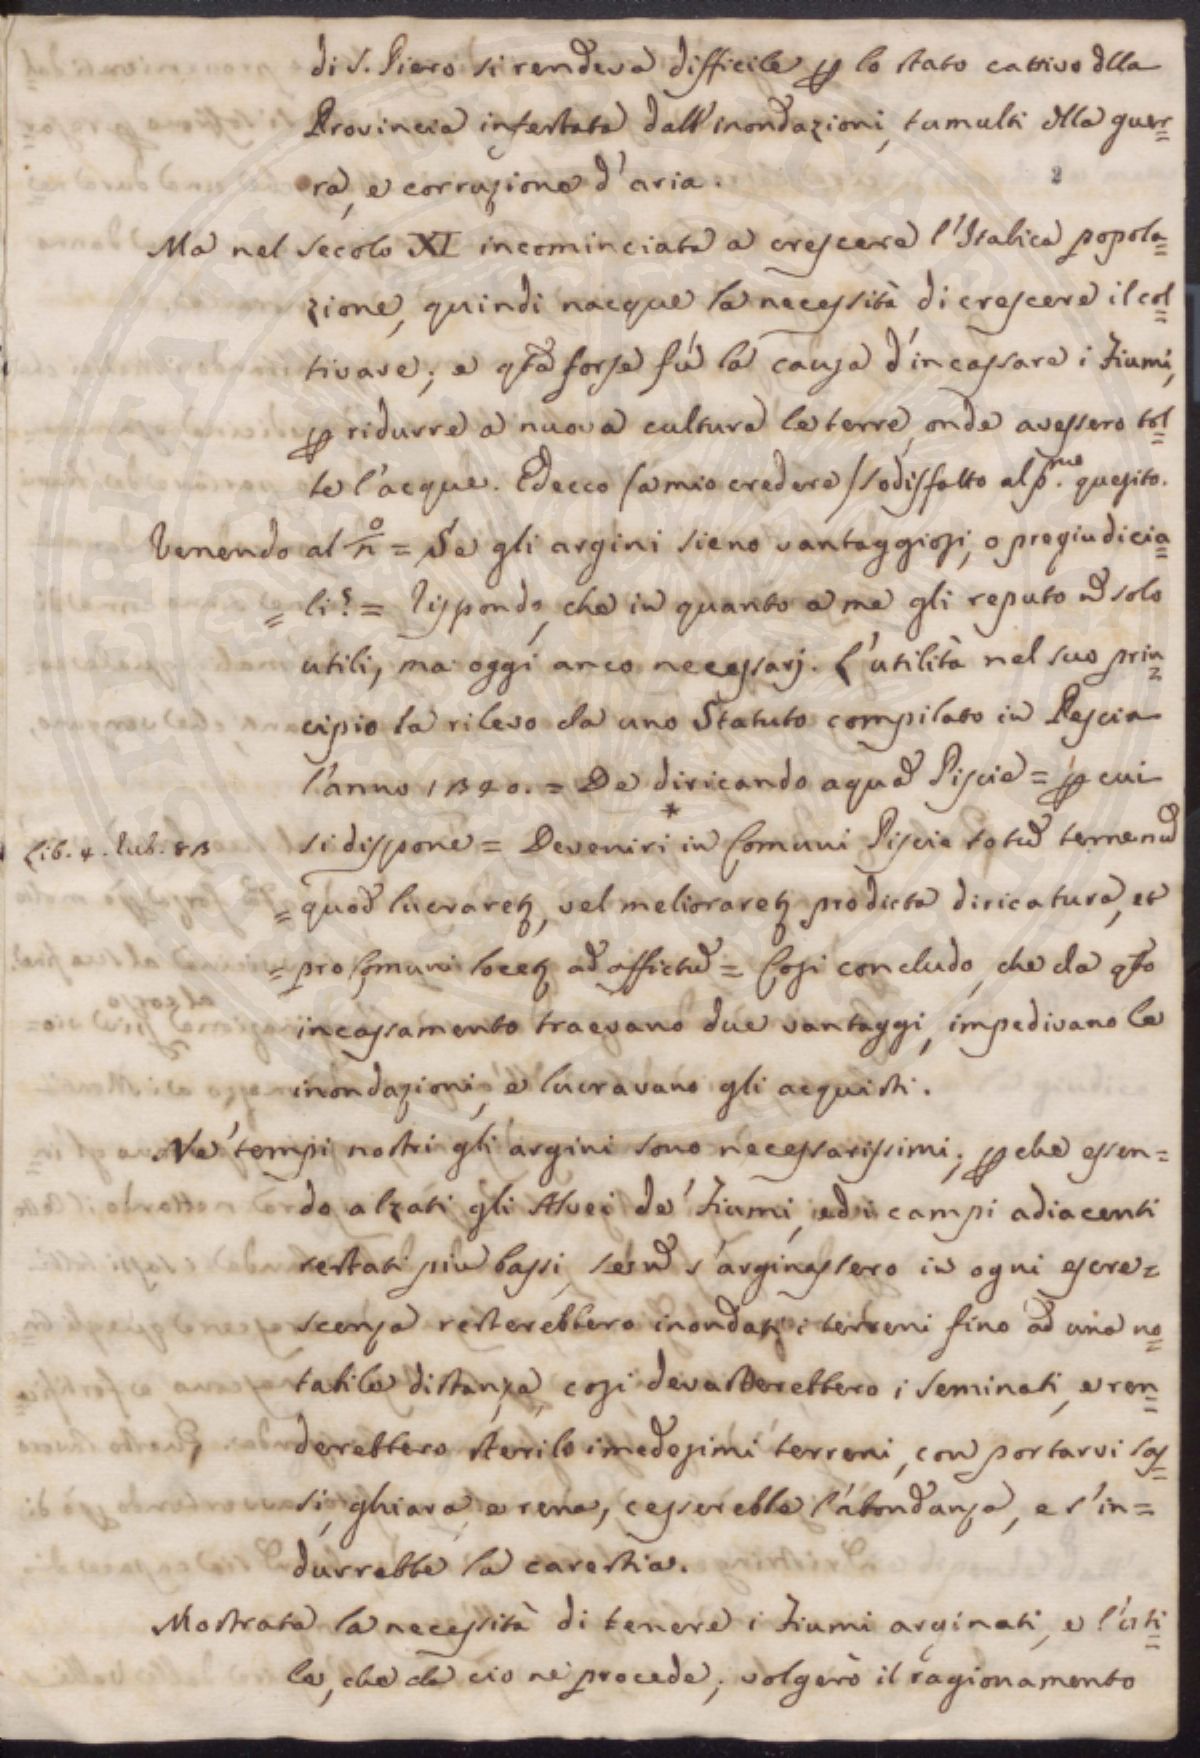 di S. Piero si rendeva difficile ꝑ lo stato cattivo dlla
Provincia infestata dall'inondazioni, tumulti dlla guer=
ra, e corruzione d'aria.
2
Ma nel secolo XI incominciata a crescere l'Italica popola=
zione, quindi nacque la necessità di crescere il col=
tivare; e qta forse fù la causa d'incassare i Fiumi,
ꝑ ridurre a nuova cultura le terre, onde avessero tol=
te l'acque. Ed ecco (a mio credere) sodisfatto al pmo. quesito.
Venendo al = Se gli argini sieno vantaggiosi, o pregiudicia=
= li? = Rispondo, che in quanto a me gli reputo nō solo
utili, ma oggi anco necessarj. L'utilità nel suo prin=
cipio la rilevo da uno Statuto compilato in Pescia
l'anno 1340. = De diricando aquā Piscie = ꝑ cui
*
Lib. 4. Rub. 83
si dispone = Deveniri in Comuni Piscie totū terrenū
= quod lucraretꝫ, vel melioraretꝫ prodicta diricatura, et
= pro Comuni locetꝫ ad affictū = Cosi concludo, che da qto
incassamento traevano due vantaggi, impedivano le
inondazioni, e lucravano gli acquisti.
Ne' tempi nostri gli argini sono necessarissimi; ꝑche essen=
do alzati gli Alvei de' Fiumi, ed i campi adiacenti
restati piu bassi, se nō s'arginassero in ogni escre=
scenza resterebbero inondati i terreni fino ad una no=
tabile distanza, cosi devasterebbero i seminati, e ren=
derebbero sterile i medesimi terreni, con portarvi sas=
si, ghiara, e rena, cesserebbe l'abondanza, e s'in=
durrebbe la carestia.
Mostrata la necessità di tenere i Fiumi arginati, e l'uti=
le, che da cio ne procede; volgerò il ragionamento